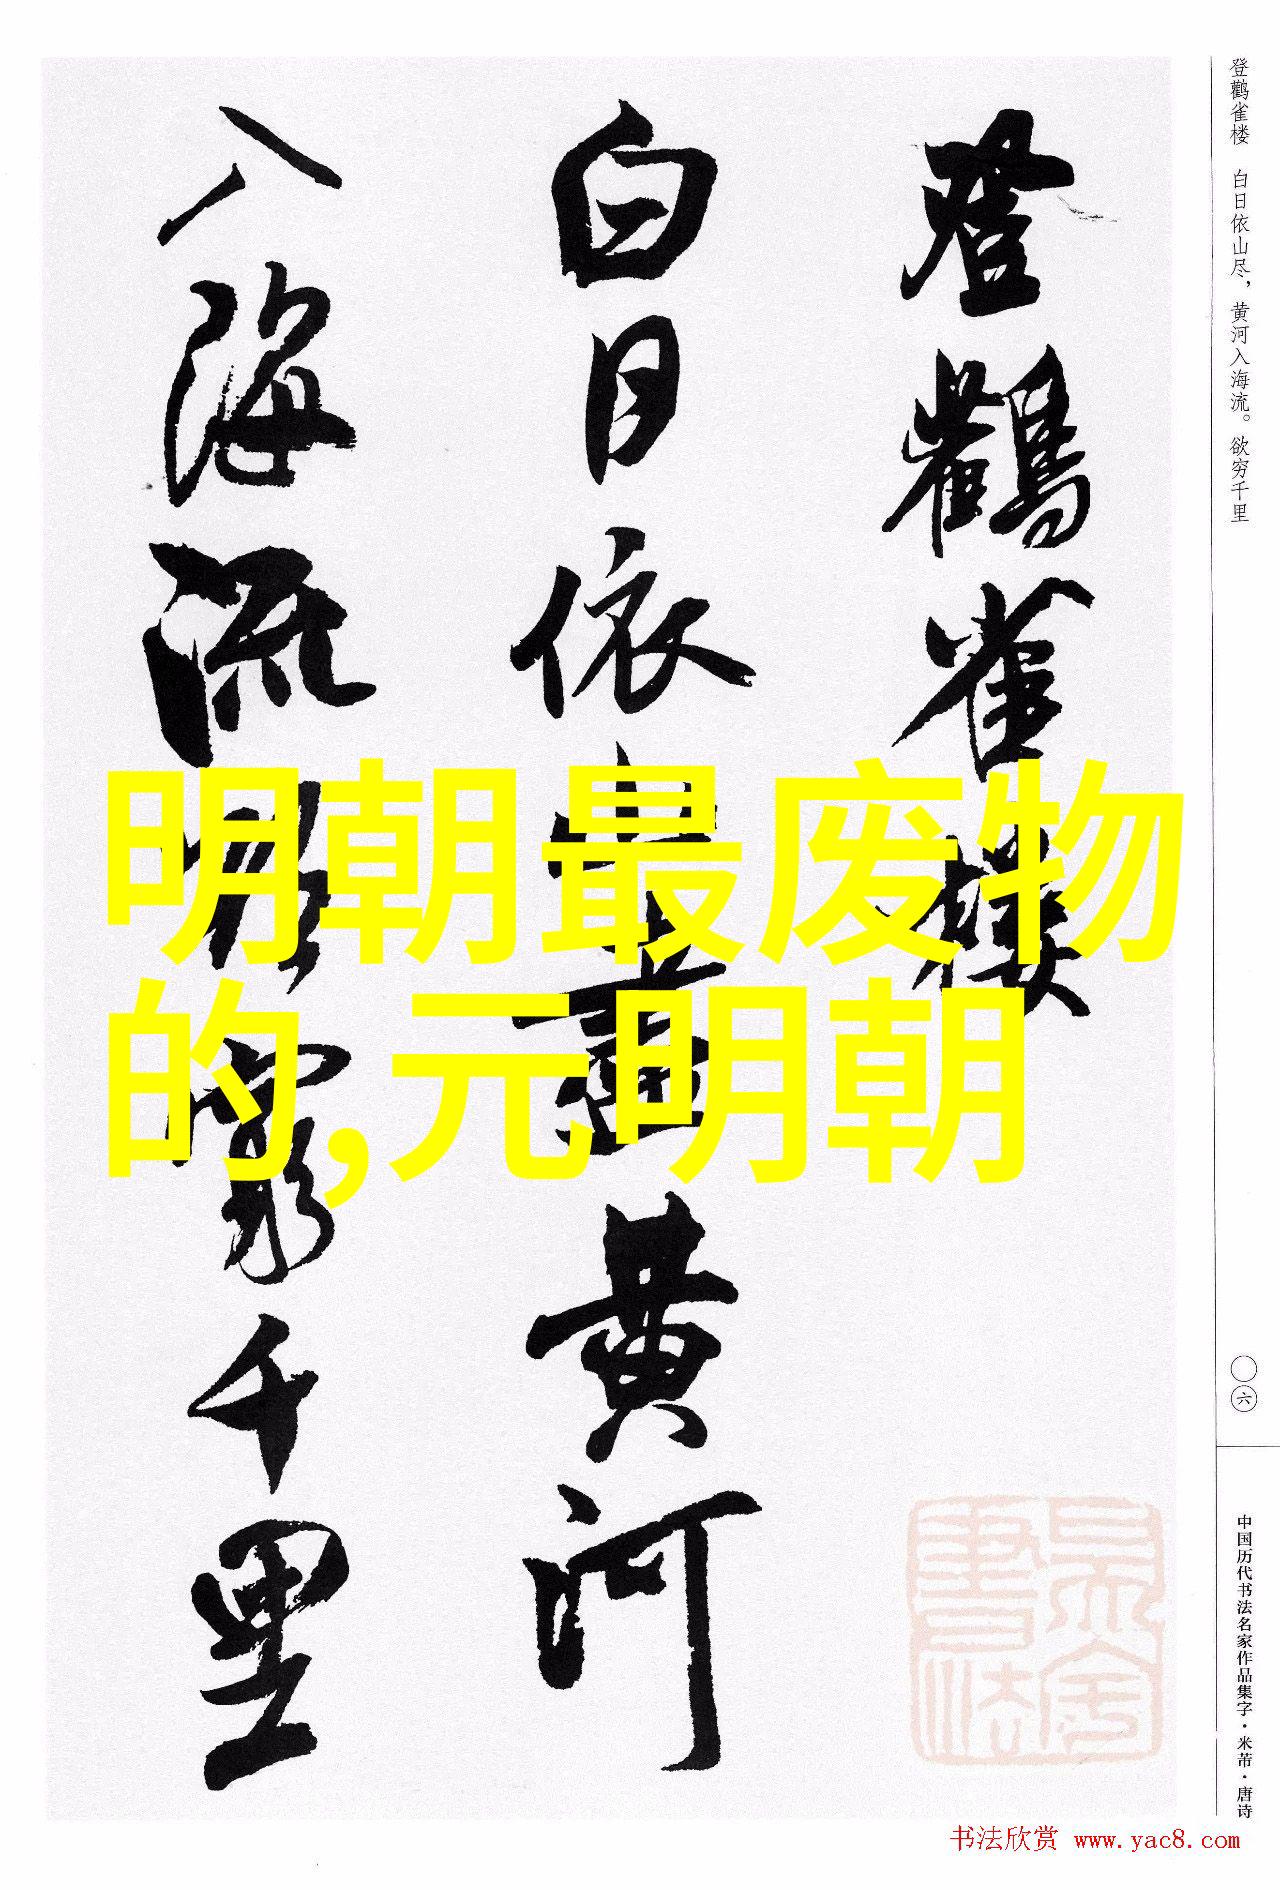 登鹳雀楼
白日依山尽黄河
入海流欲穷千里
明朝最废物
的,元明朝
登鹳雀楼 白日依山尽，黄河入海流。欲穷千里
〇六
中国历代书法名家作品集字·米芾·唐诗
书法欣赏 www.yac8.com